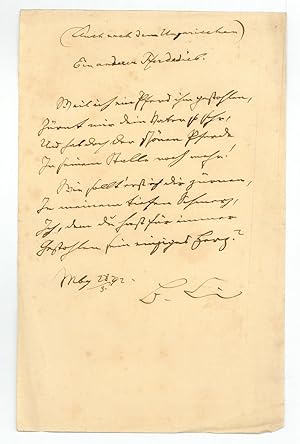 (Auch nach dem Ungarischen)
Ein anderer Pferdedieb.
Weil ich ein Pferd ihm gestohlen,
Zürnt mir dein Vater so sehr,
Und hat doch der schönen Pferde
In seinem Stalle noch mehr!
Wie sollt' erst ich dir zürnen,
In meinem tiefen Schmerz,
Ich, dem du hast für immer
Gestohlen sein einziges Herz?
Mbg 28/3. 92.